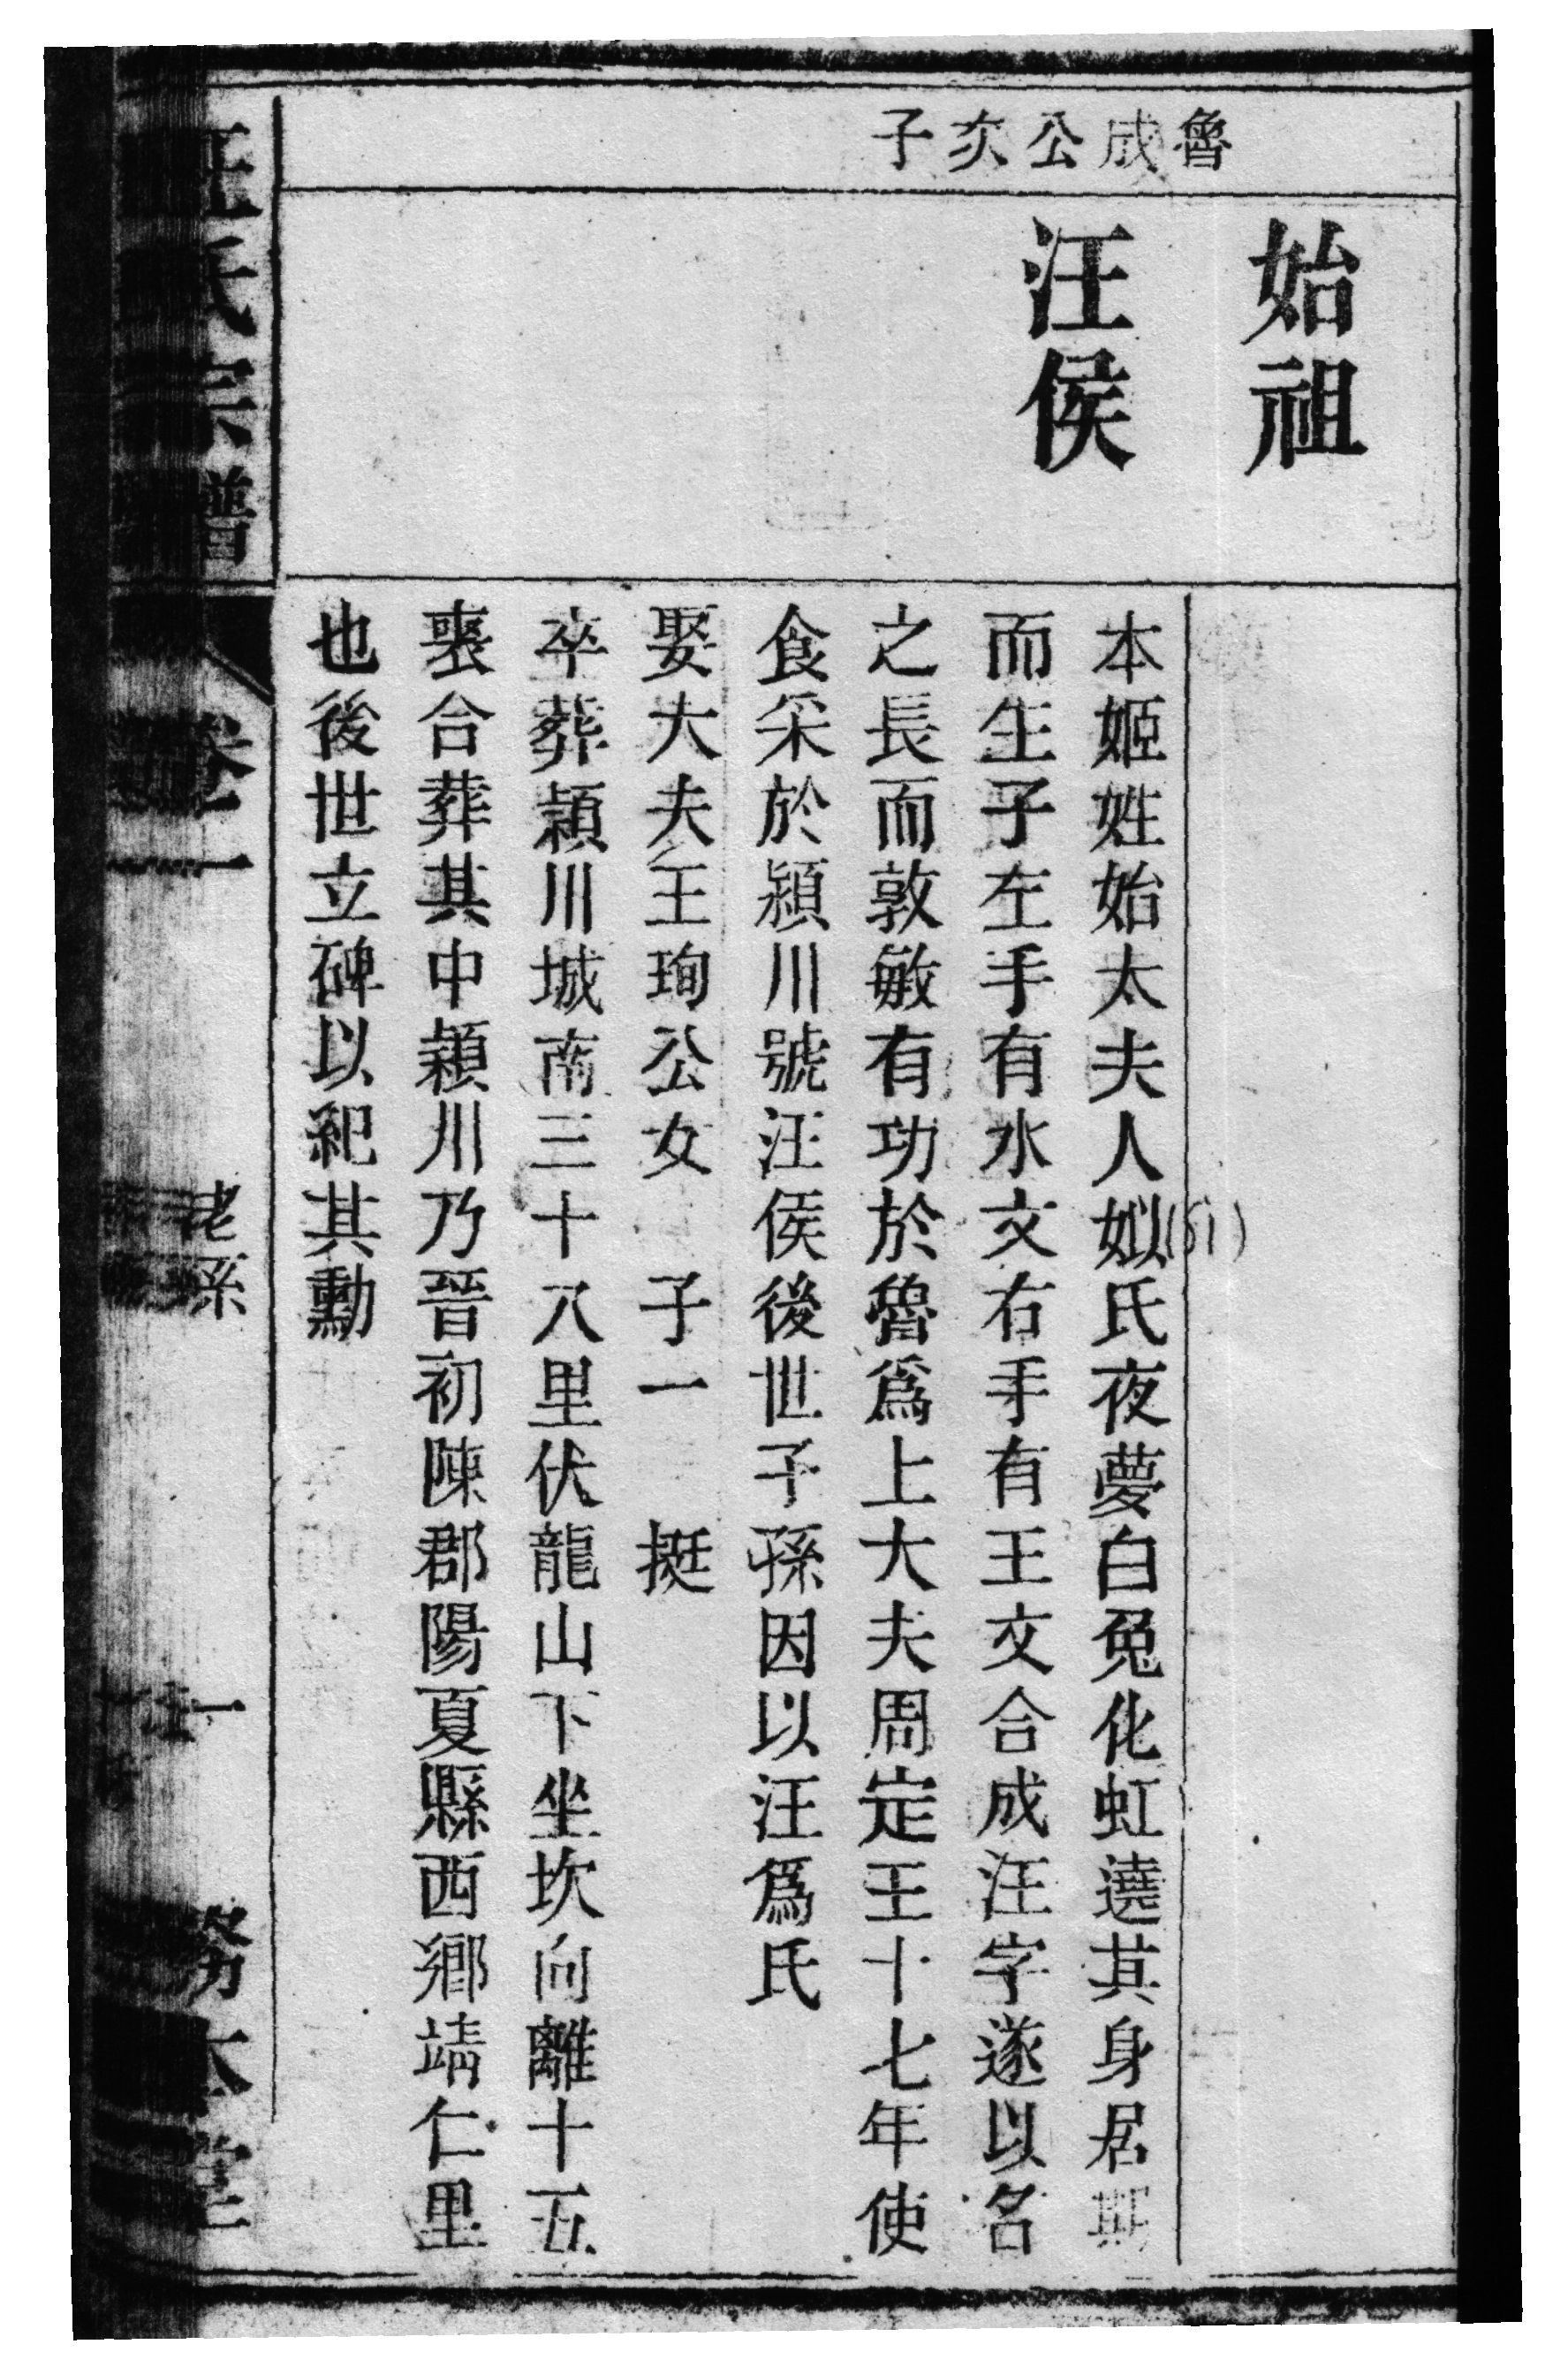 魯成公次子
始祖
汪侯
本姬姓始太夫人姒氏夜夢白兔化虹遶其身居期
(51)
而生子左手有水文右手有王文合成汪字遂以名
之長而敦敏有功於魯爲上大夫周定王十七年使
食采於潁川號汪侯後世子孫因以汪爲氏
娶大夫王珣公女 子一 挺
卒葬潁川城南三十八里伏龍山下坐坎向離十五
喪合葬其中潁川乃晉初陳郡陽夏縣西鄉靖仁里
也後世立碑以紀其勳
汪氏宗譜 卷一 老系 一 務本堂